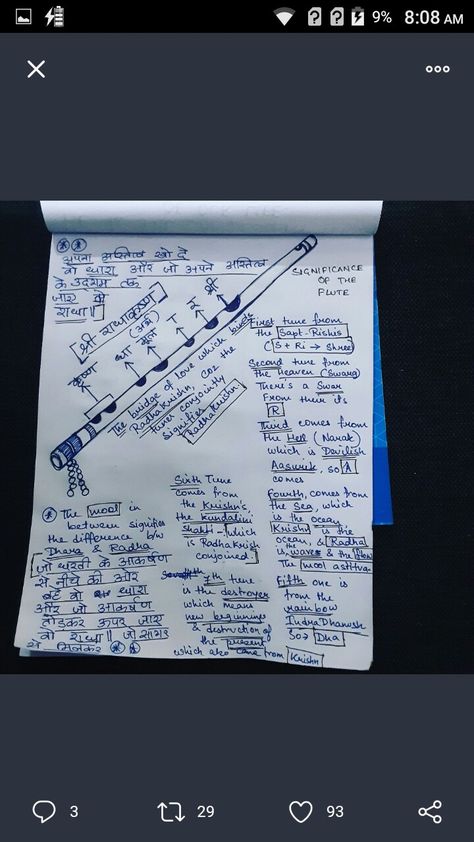 9% 8:08 AM
अपना अस्तित्व खो दे
वो धारा और जो अपने अस्तित्व
के उदगम तक
जाए वो
राधा॥
श्री राधाकृष्ण
SIGNIFICANCE
OF THE
FLUTE
श्री
र
T
मूल
धा
कृष्ण
The bridge of love which binds
Radhakrishn, coz the
tunes conjointly
signifies
Radhakrishn
First tune from
the Sapt-Rishis
(S + Ri → Shree)
Second tune from
the Heaven (Swarg)
There's a Swar
From there it's
R
Third comes from
the Hell (Narak)
which is Devilish
Aasurik, so A
comes
Fourth, comes from
the Sea, which
is the ocean,
Krishn is the
ocean, & Radha
is waves & the flow
The mool astitva
Fifth one is
from the
rainbow
IndraDhanush
So → Dha
Sixth Tune
comes from
the Krishn's,
the kundalini
shakti - which
is RadhaKrishn
conjoined
7th tune
is the destroyer
which means
new beginnings
& destruction of
the present
which also came from Krishn
The mool in
between signifies
the difference b/w
Dhara & Radha
जो धरती के आकर्षण
से नीचे की ओर
बहे वो धारा
और जो आकर्षण
तोड़कर ऊपर जाए
वो राधा॥ जो सागर
से मिलकर
3
29
93